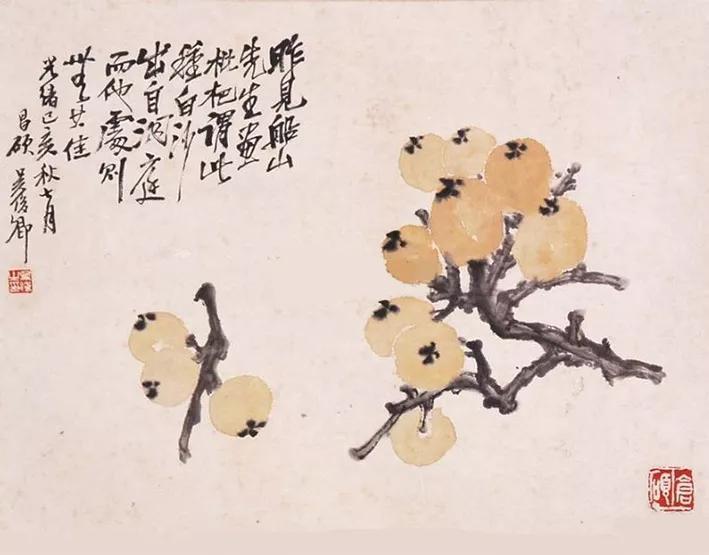 昨見船山
先生畫
枇杷謂此
種白沙
出自洞庭
而他處則
無其佳
光緒己亥秋七月
昌碩吳俊卿
倉碩